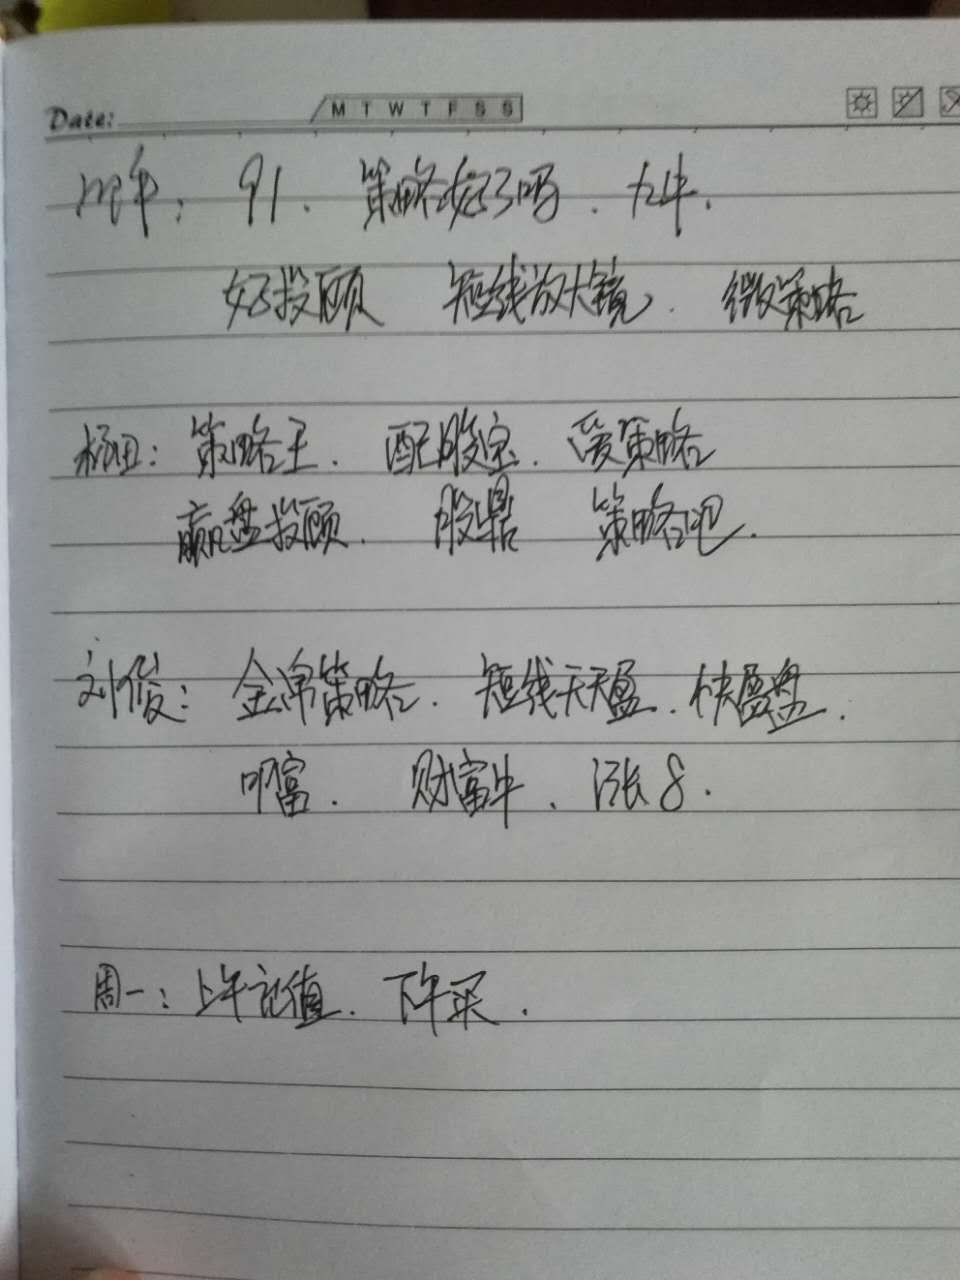 Date: M T W T F S S
91. 策略好了吗. 九牛.
好投顾 短线放大镜. 微策略
杨田: 策略王. 配股宝. 爱策略
赢盘投顾. 股鼎 策略吧.
刘俊: 金沛策略. 短线天天盈. 快盈盘.
叩富. 财富牛. 涨8.
周一: 上午记值. 下午买.